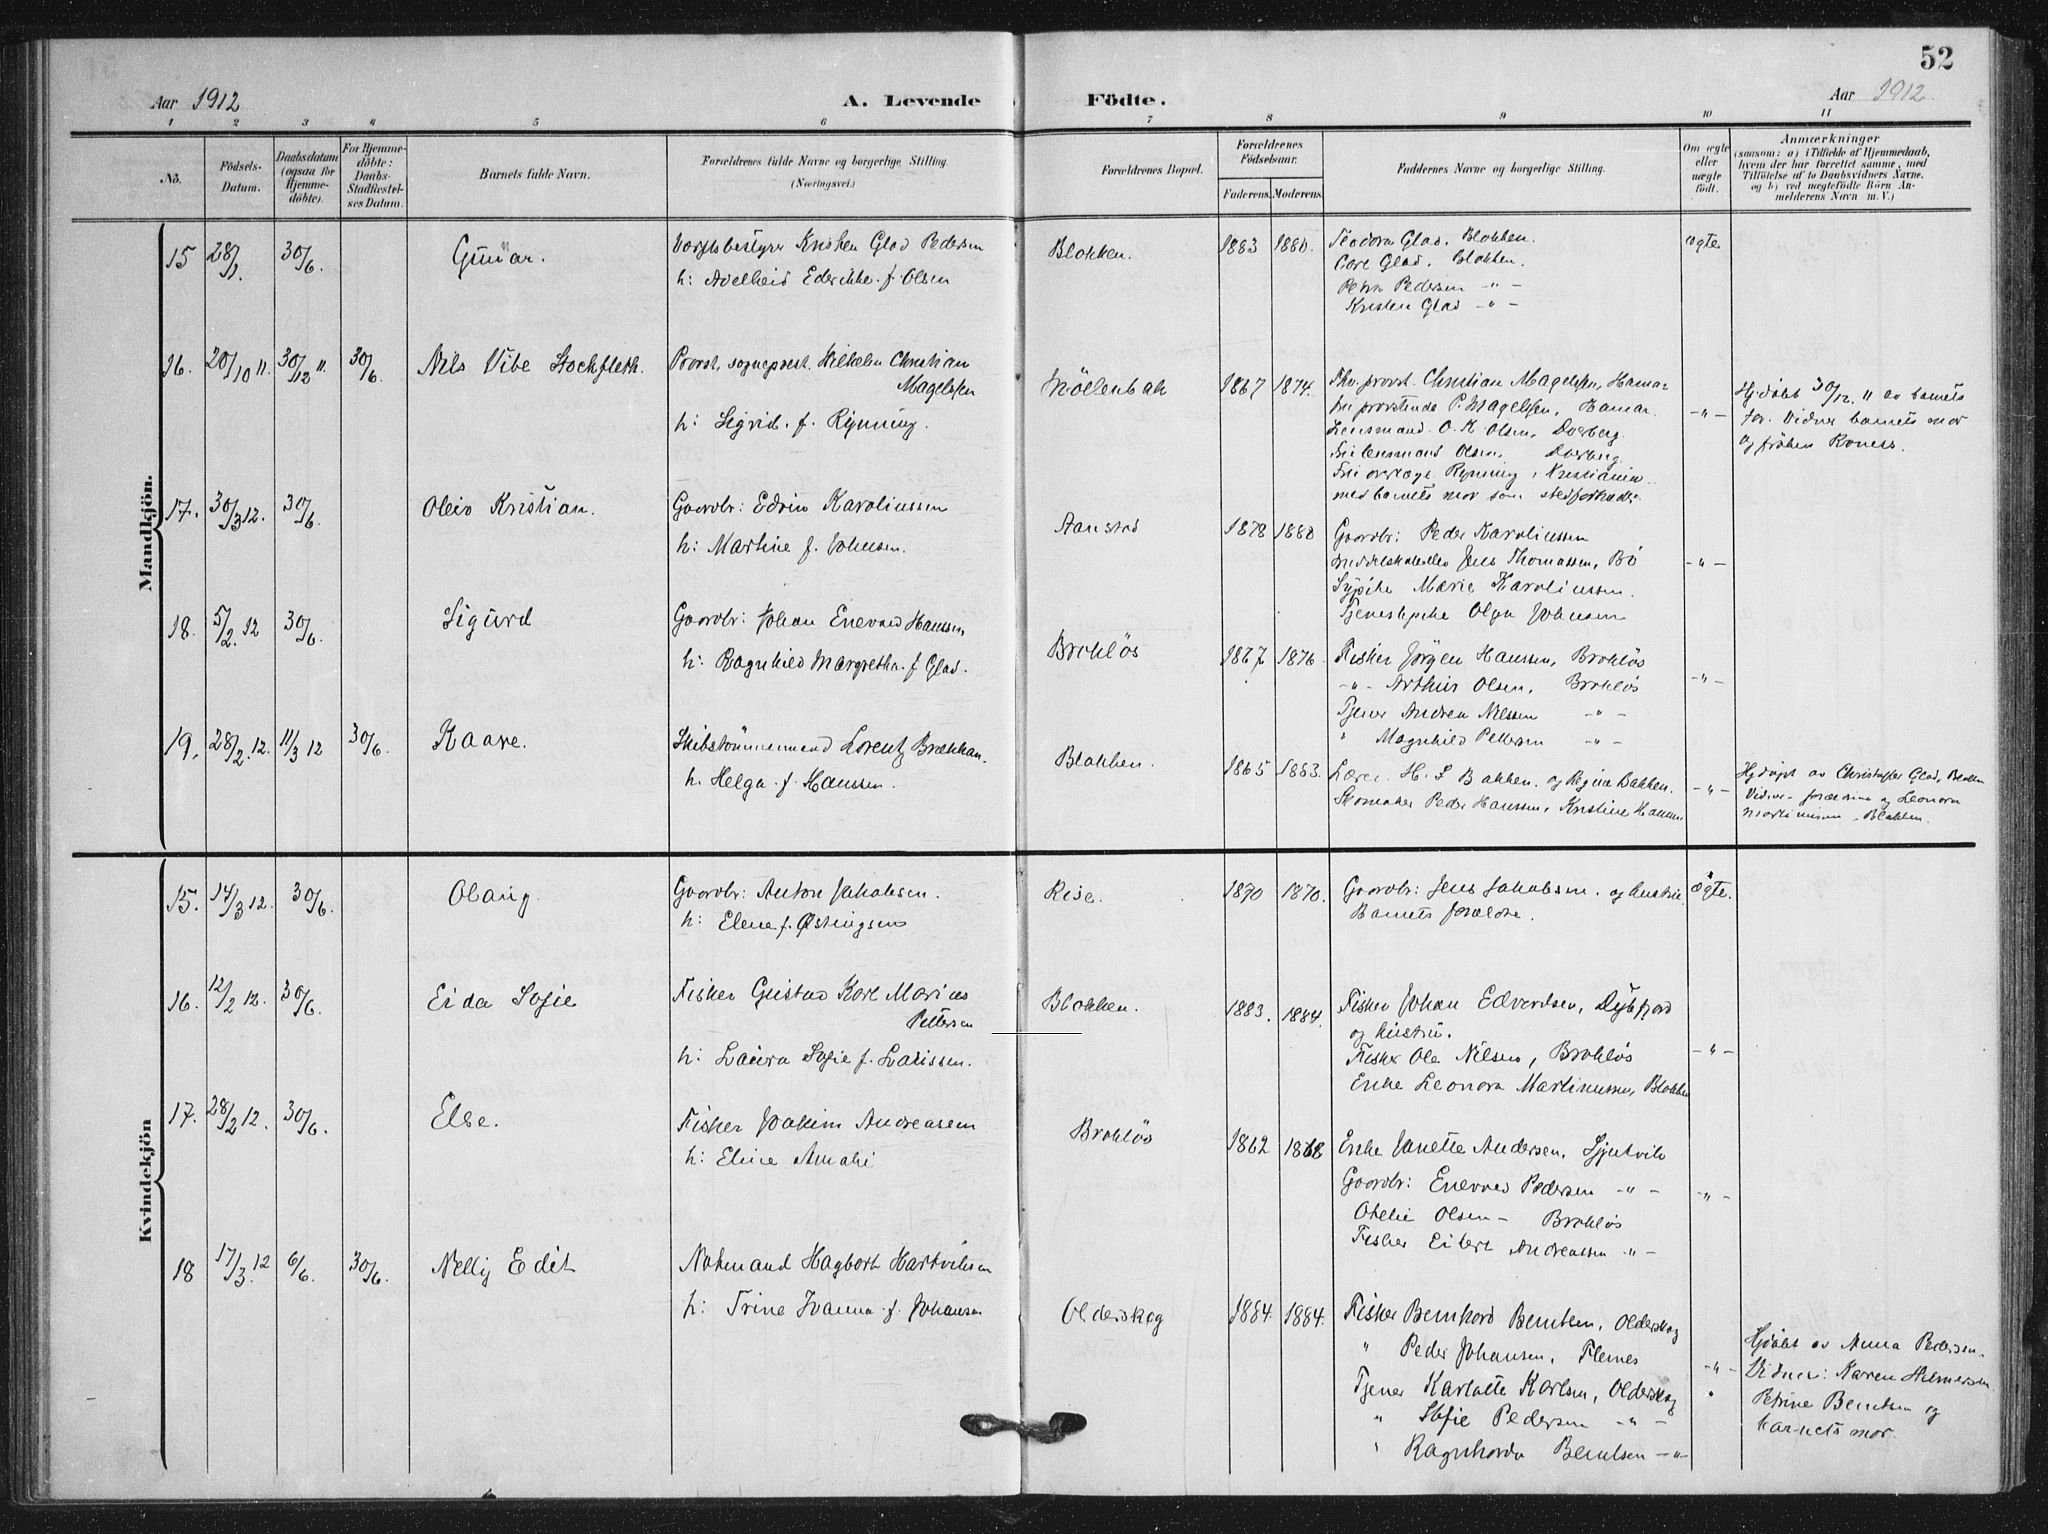 52
Aar 1912
A. Levende Födte.
Aar 1912
1 2 3 4 5 6 7 8 9 10 11
No.
Födsels-
Datum.
Daabsdatum
(ogsaa for
Hjemme-
döbte).
For Hjemme-
döbte:
Daabs-
Stadfæstel-
ses Datum.
Barnets fulde Navn.
Forældrenes fulde Navne og borgerlige Stilling.
(Næringsvei.)
Forældrenes Bopæl.
Forældrenes
Födselsaar.
Faderens. Moderens.
Faddernes Navne og borgerlige Stilling.
Om ægte
eller
uægte
födt.
Anmærkninger
(saasom: a) i Tilfælde af Hjemmedaab,
hvem der har forrettet samme, med
Tilföielse af to Daabsvidners Navne.
og b) ved uægtefödte Börn An-
melderens Navn m. V.)
Mandkjön.
15 28/1. 30/6. Gunnar.
Værftsbestyrer Kristen Glad Pedersen
h: Adelheid Ederikke f. Olsen
Blokken. 1883 1880.
Teodora Glad, Blokken.
Carl Glad, Blokken.
Petra Pedersen -"-
Kristen Glad -"-
ægte
16. 20/10 11. 30/12 11. 30/6. Nils Vibe Stockfleth.
Provst, sogneprest Wilhelm Christian
Magelssen
h: Sigrid f. Rynning.
Möllenbak 1867 1874.
Fhv. provst Christian Magelssen, Hamar
fru provstinde P. Magelssen, Hamar.
Lensmand O. K. Olsen, Dverberg.
Fru lensmand Olsen, Dverberg
Fru overlæge Rynning, Kristiania
med barnets mor som stedfortræder
-"-
Hjdöbt 30/12. 11 av barnets
far. Vidner barnets mor
og fröken Roness.
17. 30/3 12. 30/6. Oleiv Kristian.
Gaardbr: Edvin Karoliussen
h: Martine f. Johnsen.
Aanstad 1878 1880
Gaardbr: Peder Karoliussen
Jens Thomassen, Bö
Sypike Marie Karoliussen.
Tjenestepike Olga Johnsen
-"-
18. 5/2. 12 30/6. Sigurd
Gaardbr: Johan Enevald Hanssen
h: Ragnhild Margretha f. Glad.
Brokløs 1867 1876.
Fisker Jörgen Hanssen, Brokløs
-"- Arthur Olsen, Brokløs
Tjener Andrea Nilssen -"-
" Magnhild Pettersen -"-
-"-
19. 28/2. 12. 11/3 12 30/6. Kaare.
Skibstömmermand Lorentz Brækkan.
h. Helga f. Hanssen.
Blokken. 1865 1883.
Lærer H. S. Bakken, og Regine Bakken.
Skomaker Peder Hanssen, Kristine Hanssen
-"-
Hjdöpt av Christoffer Glad, Blokken
Vidner forældrene og Leonora
Martinussen, Blokken.
Kvindekjön
15. 14/3 12. 30/6. Olaug.
Gaardbr: Anton Jakobsen.
h: Elene f. Østingsen
Rise. 1870 1870.
Gaardbr: Jens Jakobsen og hustru.
Barnets forældre.
ægte.
16. 12/2 12. 30/6. Eida Sofie
Fisker Gustav Karl Marius
Pettersen
h: Laura Sofie f. Larissen.
Blokken. 1883. 1884.
Fisker Johan Edvardsen, Dybfjord
og hustru.
Fisker Ole Nilsen, Brokløs
Enke Leonora Martinussen, Blokken
-"-
17. 28/2 12. 30/6. Else.
Fisker Joakim Andreassen
h: Eline Amalie
Brokløs 1862 1868
Enke Janette Andersen, Sjutvik
Gaardbr: Enevald Pedersen -"-
Otelie Olsen - Brokløs
Fisker Eilert Andreassen -"-
-"-
18 17/3. 12 6/6. 30/6. Nelly Edit
Notmand Hagbart Hartviksen
h: Trine Ivanna f. Johansen
Olderskog 1884. 1884.
Fisker Bernhard Berntsen, Olderskog
" Peder Johansen, Flernes
Tjener Karlotte Karlsen, Olderskog
" Sofie Pedersen -"-
" Ragnharda Berntsen -"-
-"-
Hjdöbt av Anna Pedersen.
Vidner: Karen Helmersen
Petrine Berntsen og
barnets mor.